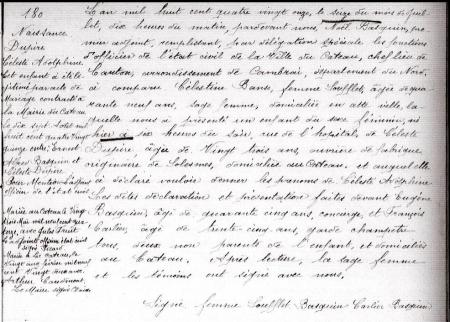 180
Naissance
Dupire
Céleste Adolphine
Cet enfant a été lé
gitimé par acte de
Mariage contracté à
la Mairie du Cateau
le dix sept
huit cent quatre vingt
quinze entre Ernest
Basquin et
Céleste Dupire
Pour Mention
de l'état civil
Mariée au Cateau le Vingt
trois Mai mil neuf cent
avec Jules
L'adjoint
signé
Mariée à Le Cateau, le
Vingt
cent Vingt
Arthur
Le Maire signé
L'an mil huit cent quatre vingt onze, le seize du mois de Juil-
let, dix heures du matin, pardevant nous, Noël Basquin, pre
mier adjoint, remplissant, par délégation spéciale les fonctions
d'officier de l'état civil de la Ville du Cateau, chef lieu de
Canton, arrondissement de Cambrai, département du Nord,
a comparu Célestine Bans, femme Soufflet, âgée de qua
rante neuf ans, sage femme, domiciliée en cette ville, la
quelle nous a présenté un enfant du sexe féminin, né
hier à six heures du soir, rue de l'hôpital, de Céleste
Dupire, âgée de Vingt trois ans, ouvrière de fabrique
originaire de Solesmes, domiciliée au Cateau, et auquel elle
a déclaré vouloir donner les prénoms de Céleste Adolphine
Les dites déclaration et présentation faites devant Eugène
Basquin, âgé de quarante cinq ans, concierge, et François
Cartier âgé de trente cinq ans, garde champêtre
tous deux non parents de l'enfant, et domiciliés
au Cateau. Après lecture, la sage femme
et les témoins ont signé avec nous.
Signé femme Soufflet Basquin Cartier Basquin